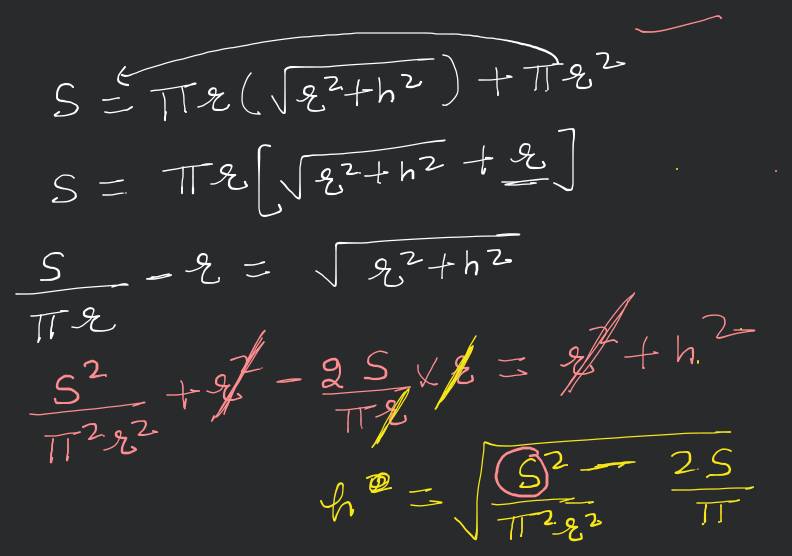 S = πr(√(r²+h²)) + πr²
S = πr[√(r²+h²) + r]
S/(πr) - r = √(r²+h²)
S²/(π²r²) + r² - 2S/(πr) × r = r² + h²
h = √(S²/(π²r²) - 2S/π)